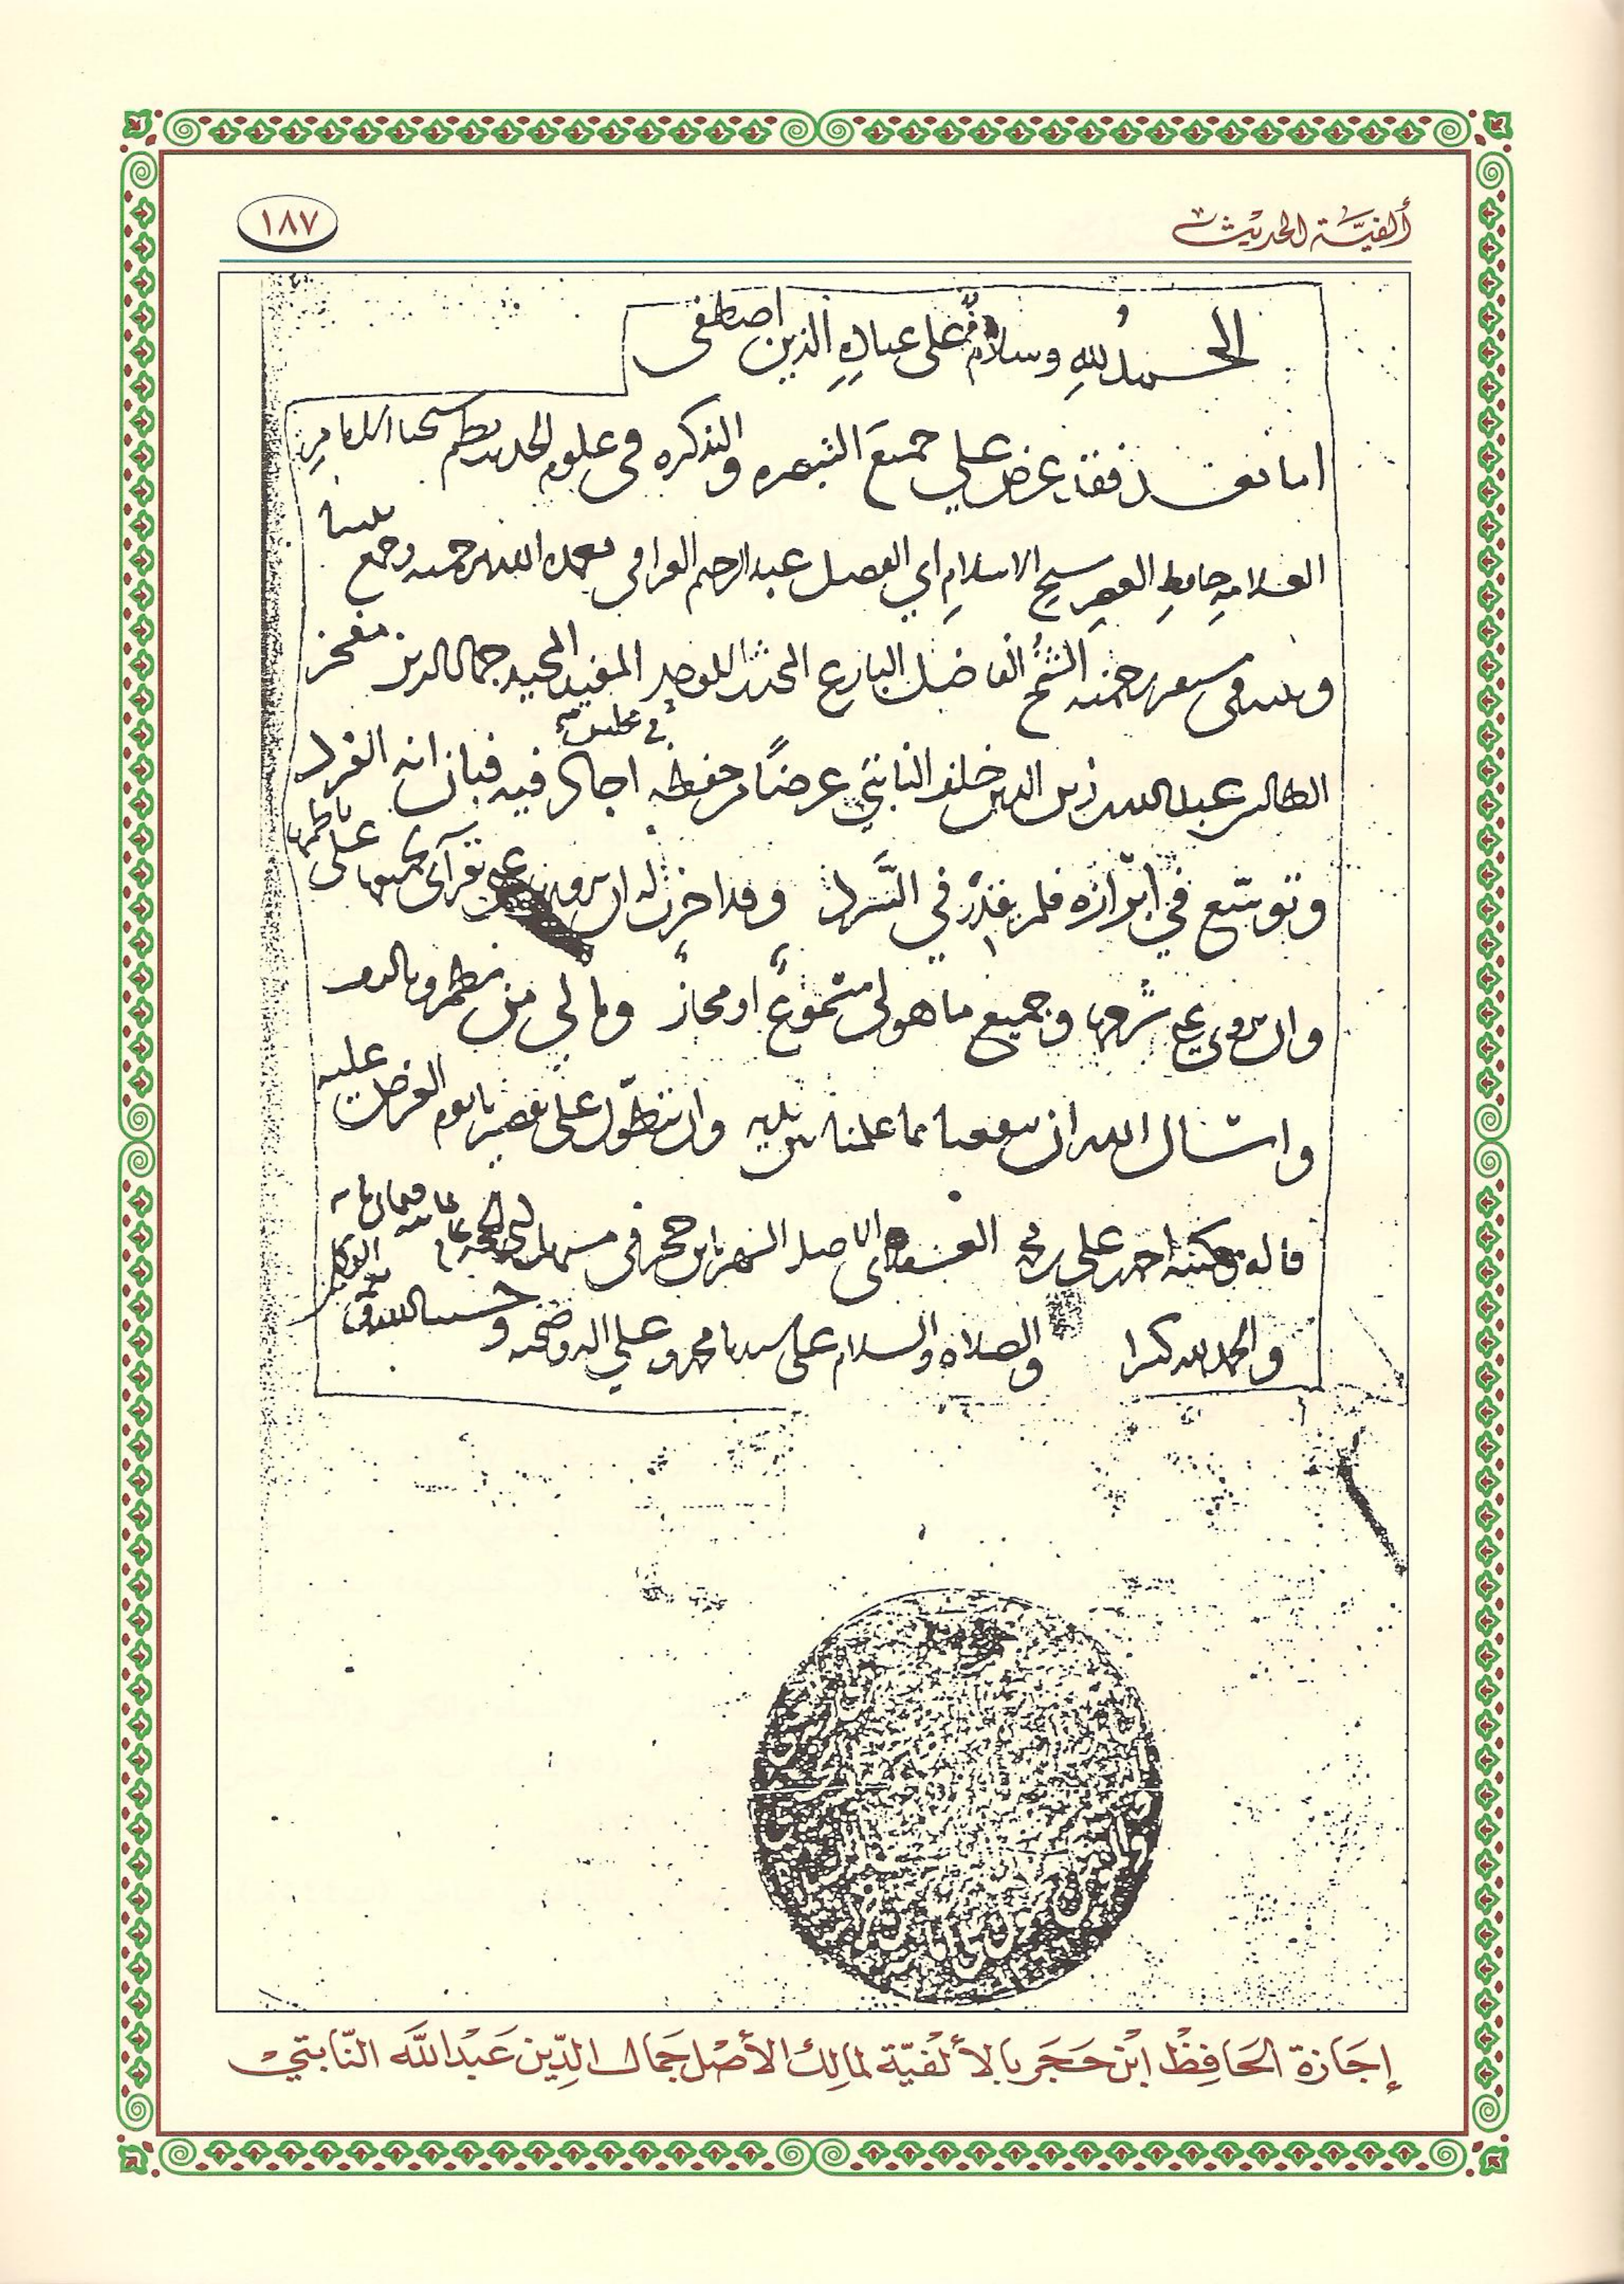 ألفيّة الحديث
١٨٧
الحمد لله وسلام على عباده الذين اصطفى
اما بعد فقد عرض علي جميع التبصره والتذكره في علوم الحديث نظم شيخنا الامام
العلامه حافظ العصر شيخ الاسلام ابي الفضل عبد الرحيم العراقي تغمده الله برحمته وجمع بيننا
وبينه في مستقر رحمته الشيخ الفاضل البارع المحدث الاوحد المفيد المجيد جمال الدين مفخر
الطالبين عبد الله بن زين الدين خلف النابتي عرضا من حفظه في مجلس اجاد فيه فبان انه الفرد
وتوسع في ابرازه فلم يقدر في السرد وقد اجزت له ان يرويها عني بقرآتي لجميعها على ناظمها
وان يروي عني شرحها وجميع ما هو لي مسموع او مجاز وما لي من نظم وتاليف
واسأل الله ان ينفعنا بما علمنا وان يتطول على تقصيرنا يوم العرض عليه
قاله وكتبه احمد بن علي بن العسقلاني الاصل الشهير بابن حجر في
والحمد لله كثيرا والصلاه والسلام على سيدنا محمد وعلى اله وصحبه وحسبنا الله ونعم الوكيل
إجازة الحافظ ابن حجر بالألفيّة لمالك الأصل جمال الدّين عبد الله النّابتي